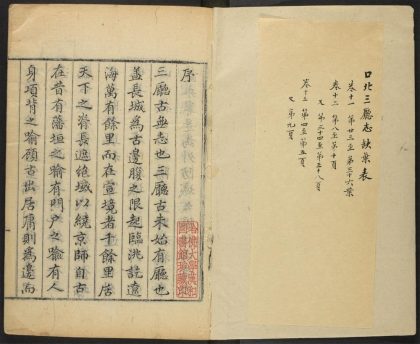 口北三廳志缺葉表
卷十一 第廿三至第三十六葉
卷十二 第八至第十頁
又 第三十四至第三十八頁
卷十三 第四至第五頁
又 第九頁
序
三廳古無志也三廳古未始有廳也
蓋長城為古邊腹之限起臨洮訖遼
海萬有餘里而在宣境者千餘里居
天下之脊長遮絶域以繞京師自古
在昔有藩垣之喻有門戶之喻有人
身項背之喻顧古出居庸則為邊而